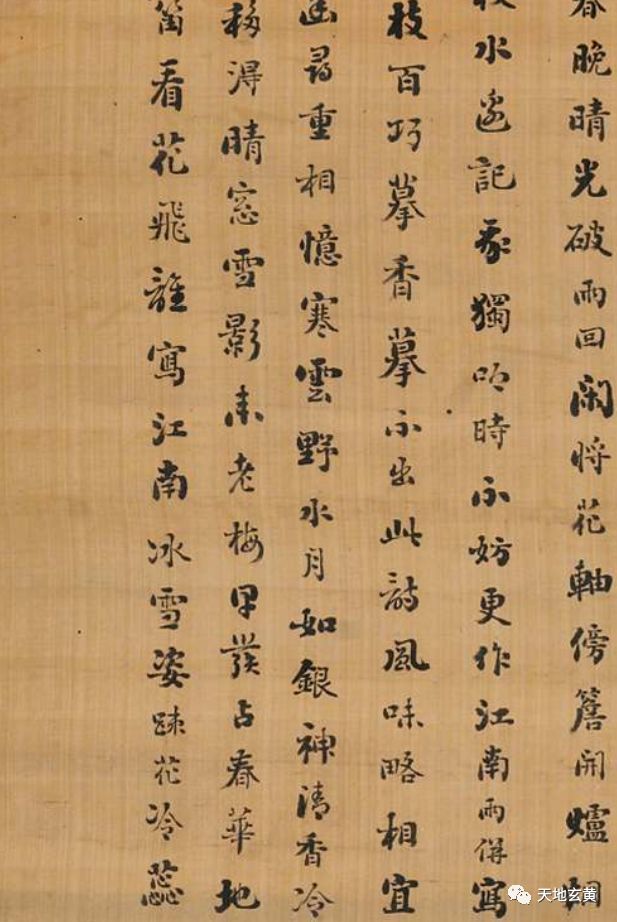 春晚晴光破雨回閑將花軸傍簷開爐烟
水邊記我獨吟時不妨更作江南雨併寫
枝百巧摹香摹不出此詩風味略相宜
幽尋重相憶寒雲野水月如銀神清香冷
移得晴窓雪影未老梅早發占春華地
笛看花飛誰寫江南冰雪姿踈花冷蕊
天地玄黄